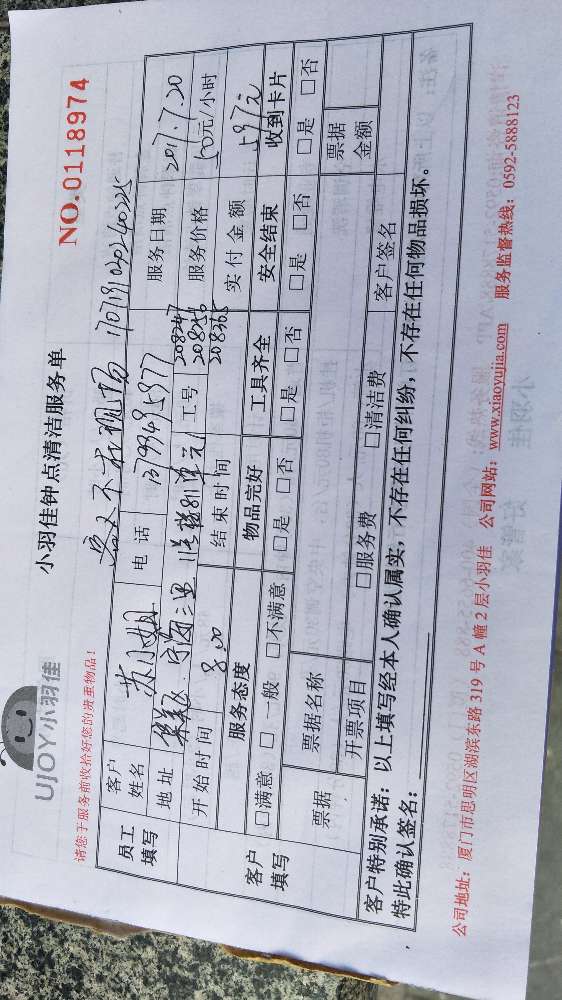 UJOY小羽佳
小羽佳钟点清洁服务单
NO.0118974
请您于服务前收拾好您的贵重物品!
客户不在现场 170719102024 0225
员工填写
客户姓名 苏小姐 电话 13799495977 服务日期 2017.7.20
地址 工号 208247 208256 208365 服务价格 50元/小时
开始时间 8.00 结束时间 实付金额 597元
客户填写
服务态度 物品完好 工具齐全 安全结束 收到卡片
□满意 □一般 □不满意 □是 □否 □是 □否 □是 □否 □是 □否
票据 票据名称 票据金额
开票项目 □服务费 □清洁费 客户签名
客户特别承诺:以上填写经本人确认属实,不存在任何纠纷,不存在任何物品损坏。
特此确认签名:
公司地址:厦门市思明区湖滨东路 319 号 A 幢 2 层小羽佳 公司网站:www.xiaoyujia.com 服务监督热线:0592-5888123